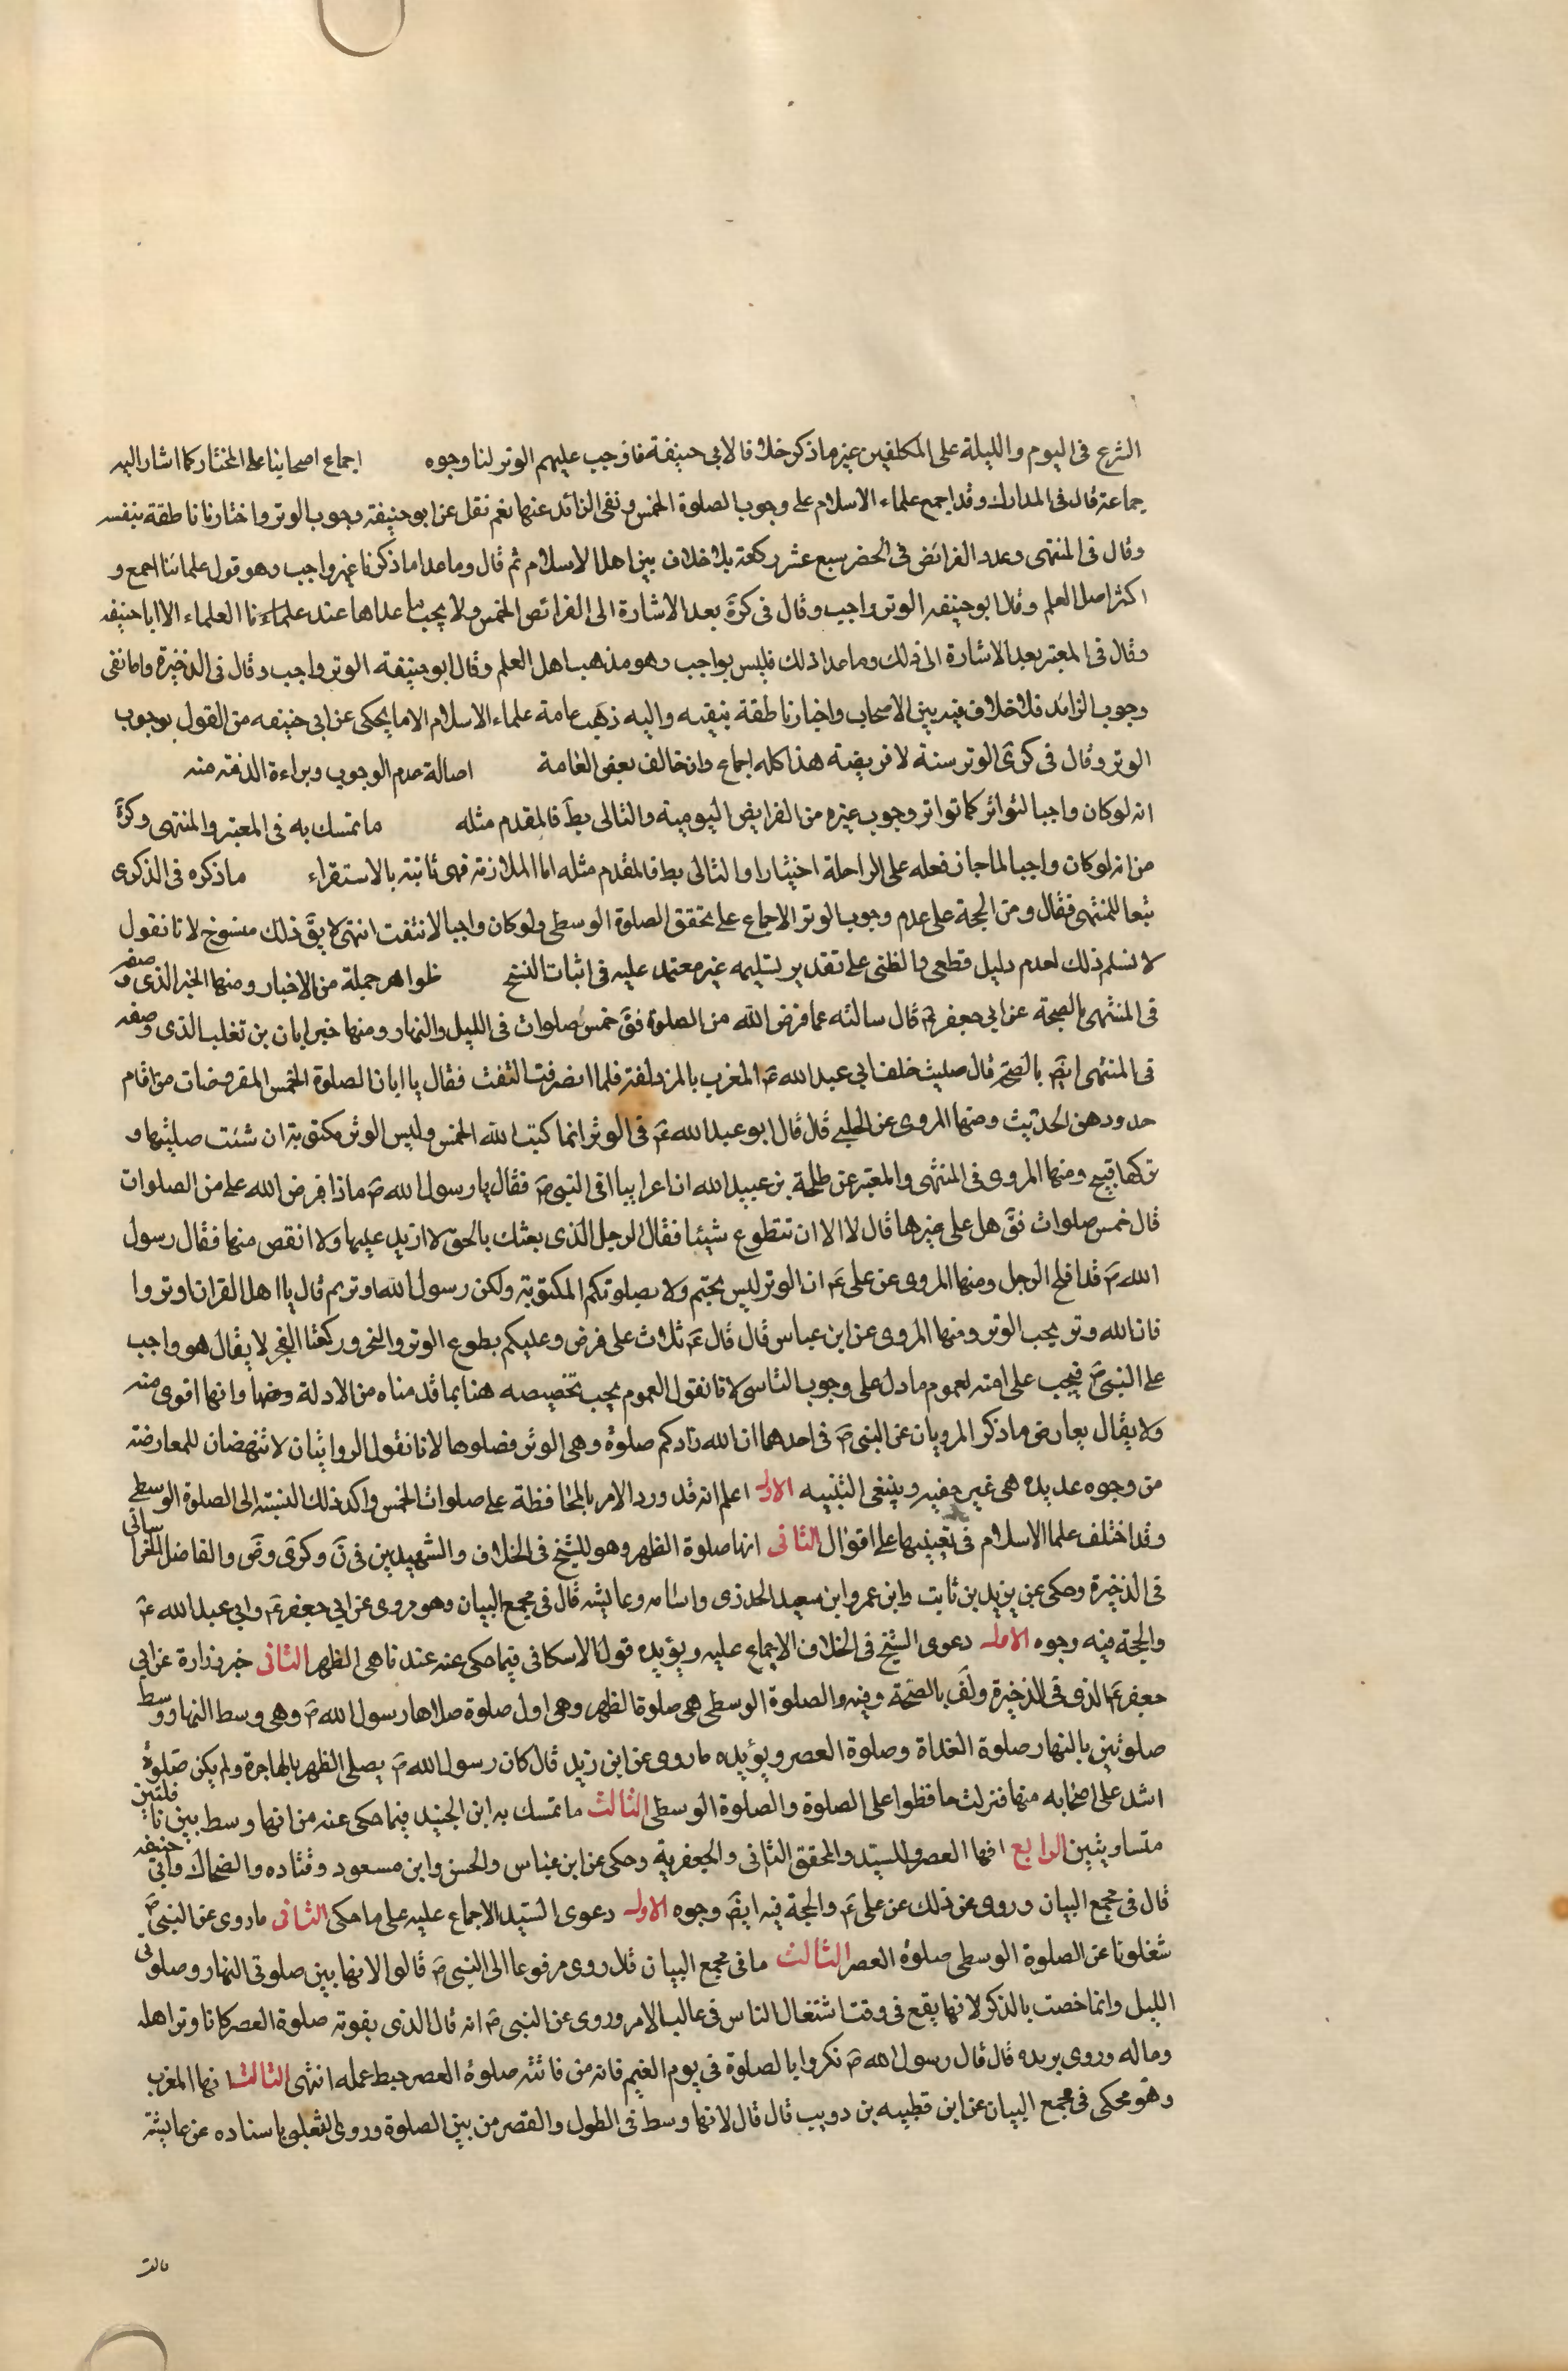 الشرع فى اليوم والليلة على المكلفين غير ما ذكر خلافا لابى حنيفة فاوجب عليهم الوتر لنا وجوه اجماع اصحابنا على المختار كما اشار اليه
جماعة قال فى المدارك وقد اجمع علماء الاسلام على وجوب الصلوة الخمس ونفى الزائد عنها نعم نقل عن ابو حنيفة وجوب الوتر واخبارنا ناطقة بنفسه
وقال فى المنتهى وعدد الفرائض فى الحضر سبع عشر ركعة بلا خلاف بين اهل الاسلام ثم قال وما عدا ما ذكرنا غير واجب وهو قول علمائنا اجمع و
اكثر اهل العلم وقال ابو حنيفه الوتر واجب وقال فى كرة بعد الاشارة الى الفرائض الخمس ولا يجب ما عداها عند علماءنا العلماء الا ابا حنيفه
وقال فى المعتبر بعد الاشارة الى ذلك وما عدا ذلك فليس بواجب وهو مذهب اهل العلم وقال ابو حنيفة الوتر واجب وقال فى الذخيرة واما نفى
وجوب الزائد فلا خلاف فيه بين الاصحاب واخبارنا طقة بنفيه واليه ذهب عامة علماء الاسلام الا ما يحكى عن ابى حنيفه من القول بوجوب
الوتر وقال فى كرى الوتر سنة لا فريضة هذا كله اجماع وان خالف بعض العامة اصالة عدم الوجوب وبراءة الذمة منه
انه لو كان واجبا لتواتر كما تواتر وجوب غيره من الفرايض اليومية والتالى بط فالمقدم مثله ما تمسك به فى المعتبر والمنتهى وكرة
من انه لو كان واجبا لما جاز فعله على الراحلة اختيارا والتالى بط فالمقدم مثله اما الملازمة فهى ثابتة بالاستقراء ما ذكره فى الذكرى
تبعا للمنتهى فقال ومن الحجة على عدم وجوب الوتر الاجماع على تحقق الصلوة الوسطى ولو كان واجبا لانتفت انتهى لا يق ذلك منسوخ لانا نقول
لا نسلم ذلك لعدم دليل قطعى والظنى على تقدير تسليمه غير معتمد عليه فى اثبات النسخ ظواهر جملة من الاخبار ومنها الخبر الذى وصفه
فى المنتهى بالصحة عن ابى جعفر ع قال سالته عما فرض الله من الصلوة فق خمس صلوات فى الليل والنهار ومنها خبر ابان بن تغلب الذى وصفه
فى المنتهى ايض بالصحة قال صليت خلف ابى عبد الله ع المغرب بالمزدلفة فلما انصرفت التفت فقال يا ابان الصلوة الخمس المفروضات من اقام
حدودهن الحديث ومنها المروى عن الحلبى قال قال ابو عبد الله ع فى الوتر انما كتب الله الخمس وليس الوتر مكتوبة ان شئت صليتها و
تركها قبيح ومنها المروى فى المنتهى والمعتبر عن طلحة بن عبيد الله ان اعرابيا اتى النبى ص فقال يا رسول الله ص ماذا فرض الله على من الصلوات
قال خمس صلوات فق هل على غيرها قال لا الا ان تتطوع شيئا فقال الرجل الذى بعثك بالحق لا ازيد عليها ولا انقص منها فقال رسول
الله ص قد افلح الرجل ومنها المروى عن على ع ان الوتر ليس بحتم ولا بصلوتكم المكتوبة ولكن رسول الله اوتر ثم قال يا اهل القران اوتروا
فان الله وتر يحب الوتر ومنها المروى عن ابن عباس قال قال ع ثلاث على فرض وعليكم بطوع الوتر والنحر وركعتا الفجر لا يقال هو واجب
على النبى ص فيجب على امته لعموم ما دل على وجوب التاسى لانا نقول العموم يجب تخصيصه هنا بما قدمناه من الادلة وانها اقوى منه
ولا يقال يعارض ما ذكر المرويان عن النبى ص فى احدهما ان الله زادكم صلوة وهى الوتر فصلوها لانا نقول الروايتان لا تنهضان للمعارضة
من وجوه عديدة هى غير خفيه وينبغى التنبيه الاول اعلم انه قد ورد الامر بالمحافظة على صلوات الخمس واكد ذلك بالنسبته الى الصلوة الوسطى
وقد اختلف علما الاسلام فى تعيينها على اقوال الثانى انها صلوة الظهر وهو للشيخ فى الخلاف والشهيدين فى ن وكرى وض والفاضل الخراسانى
فى الذخيرة وحكى عن يزيد بن ثابت وابن عمر وابن سعيد الخدرى واسامه وعايشه قال فى مجمع البيان وهو مروى عن ابى جعفر ع وابى عبد الله ع
والحجة فيه وجوه الاول دعوى الشيخ فى الخلاف الاجماع عليه ويؤيده قول الاسكافى فيما حكى عنه عندنا هى الظهر الثانى خبر زرارة عن ابى
جعفر ع الذى فى الذخيرة ولف بالصحة وفيه والصلوة الوسطى هى صلوة الظهر وهى اول صلوة صلاها رسول الله ص وهى وسط النهار ووسط
صلوتين بالنهار صلوة الغداة وصلوة العصر ويؤيده ما روى عن ابن زيد قال كان رسول الله ص يصلى الظهر بالهاجرة ولم يكن صلوة
اشد على اصحابه منها فنزلت حافظوا على الصلوة والصلوة الوسطى الثالث ما تمسك به ابن الجنيد فيما حكى عنه من انها وسط بين نافلتين
متساويتين الرابع انها العصر وللسيد والمحقق الثانى والجعفرية وحكى عن ابن عباس والحسن وابن مسعود وقتاده والضحاك وابى حنيفه
قال فى مجمع البيان وروى عن ذلك عن على ع والحجة فيه ايض وجوه الاول دعوى السيد الاجماع عليه على ما حكى الثانى ما روى عن النبى ص
شغلونا عن الصلوة الوسطى صلوة العصر الثالث ما فى مجمع البيان قد روى مرفوعا الى النبى ص قالوا لانها بين صلوتى النهار وصلوتى
الليل وانما خصت بالذكر لانها يقع فى وقت اشتغال الناس فى غالب الامر وروى عن النبى ص انه قال الذى يفوته صلوة العصر كانا وتر اهله
وماله وروى بريده قال قال رسول الله ص بكروا بالصلوة فى يوم الغيم فانه من فاتته صلوة العصر حبط عمله انتهى الثالث انها المغرب
وهو محكى فى مجمع البيان عن ابن قطيبه بن دويب قال قال لانها وسط فى الطول والقصر من بين الصلوة وروى الثعلبى باسناده عن عايشة
قالت